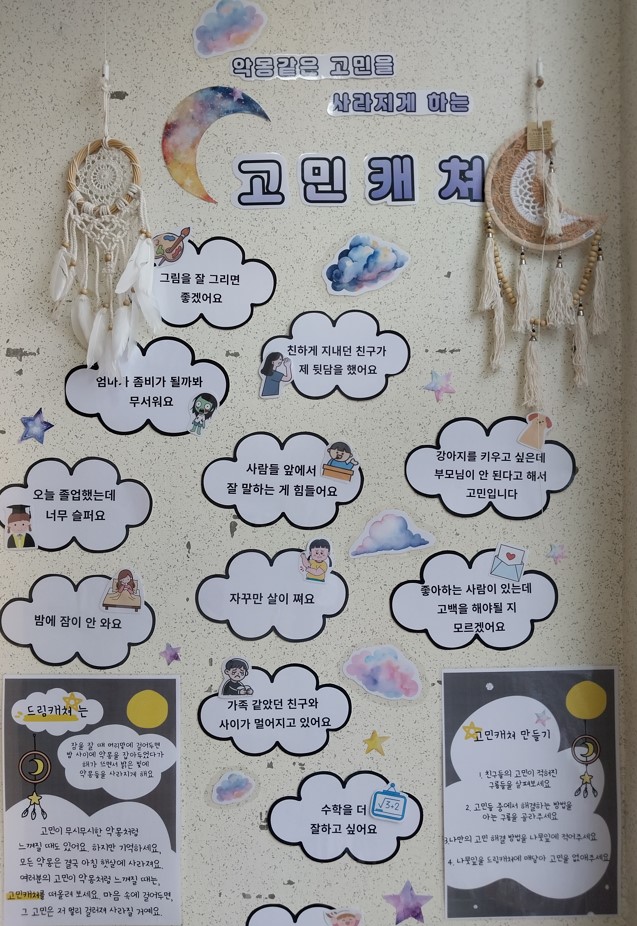 악몽같은 고민을
사라지게 하는
고민캐쳐
그림을 잘 그리면
좋겠어요
친하게 지내던 친구가
제 뒷담을 했어요
엄마가 좀비가 될까봐
무서워요
사람들 앞에서
잘 말하는 게 힘들어요
강아지를 키우고 싶은데
부모님이 안 된다고 해서
고민입니다
오늘 졸업했는데
너무 슬퍼요
밤에 잠이 안 와요
자꾸만 살이 쪄요
좋아하는 사람이 있는데
고백을 해야될 지
모르겠어요
가족 같았던 친구와
사이가 멀어지고 있어요
수학을 더
잘하고 싶어요
√3+2
드림캐쳐 는
잠을 잘 때 머리맡에 걸어두면
밤 사이에 악몽을 잡아두었다가
해가 뜨면서 밝은 빛에
악몽들을 사라지게 해요
고민이 무시무시한 악몽처럼
느껴질 때도 있어요. 하지만 기억하세요.
모든 악몽은 결국 아침 햇살에 사라져요.
여러분의 고민이 악몽처럼 느껴질 때는,
고민캐쳐를 떠올려 보세요. 마음 속에 걸어두면,
그 고민은 저 멀리 걸러져 사라질 거예요.
고민캐쳐 만들기
1. 친구들의 고민이 적혀진
구름들을 살펴보세요.
2. 고민들 중에서 해결하는 방법을
아는 구름을 골라주세요.
3.나만의 고민 해결 방법을 나뭇잎에 적어주세요.
4. 나뭇잎을 드림캐쳐에 매달아 고민을 없애주세요.